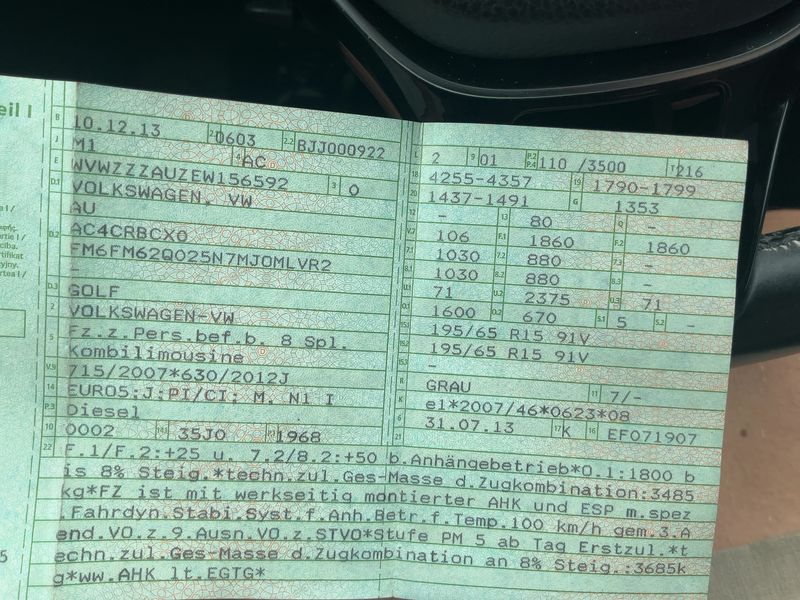 eil I
B 10.12.13 2.1 0603 2.2 BJJ000922
J M1 4 AC
E WVWZZZAUZEW156592 3 0
D.1 VOLKSWAGEN, VW
AU
D.2 AC4CRBCX0
FM6FM62Q025N7MJOMLVR2
-
D.3 GOLF
2 VOLKSWAGEN-VW
5 Fz.z.Pers.bef.b. 8 Spl.
Kombilimousine
V.9 715/2007*630/2012J
14 EURO5;J;PI/CI; M, N1 I
P.3 Diesel
10 0002 14.1 35J0 P.1 1968
L 2 9 01 P.2 P.4 110 /3500 T 216
18 4255-4357 19 1790-1799
20 1437-1491 G 1353
12 - 13 80 Q -
V.7 106 F.1 1860 F.2 1860
7.1 1030 7.2 880 7.3 -
8.1 1030 8.2 880 8.3 -
U.1 71 U.2 2375 U.3 71
O.1 1600 O.2 670 S.1 5 S.2 -
15.1 195/65 R15 91V
15.2 195/65 R15 91V
15.3 -
R GRAU 11 7/-
K e1*2007/46*0623*08
6 31.07.13 17 K 16 EF071907
21
22 F.1/F.2:+25 u. 7.2/8.2:+50 b.Anhängebetrieb*O.1:1800 b
is 8% Steig.*techn.zul.Ges-Masse d.Zugkombination:3485
kg*FZ ist mit werkseitig montierter AHK und ESP m.spez
.Fahrdyn.Stabi.Syst.f.Anh.Betr.f.Temp.100 km/h gem.3.A
end.VO.z.9.Ausn.VO.z.STVO*Stufe PM 5 ab Tag Erstzul.*t
echn.zul.Ges-Masse d.Zugkombination an 8% Steig.:3685k
g*ww.AHK lt.EGTG*